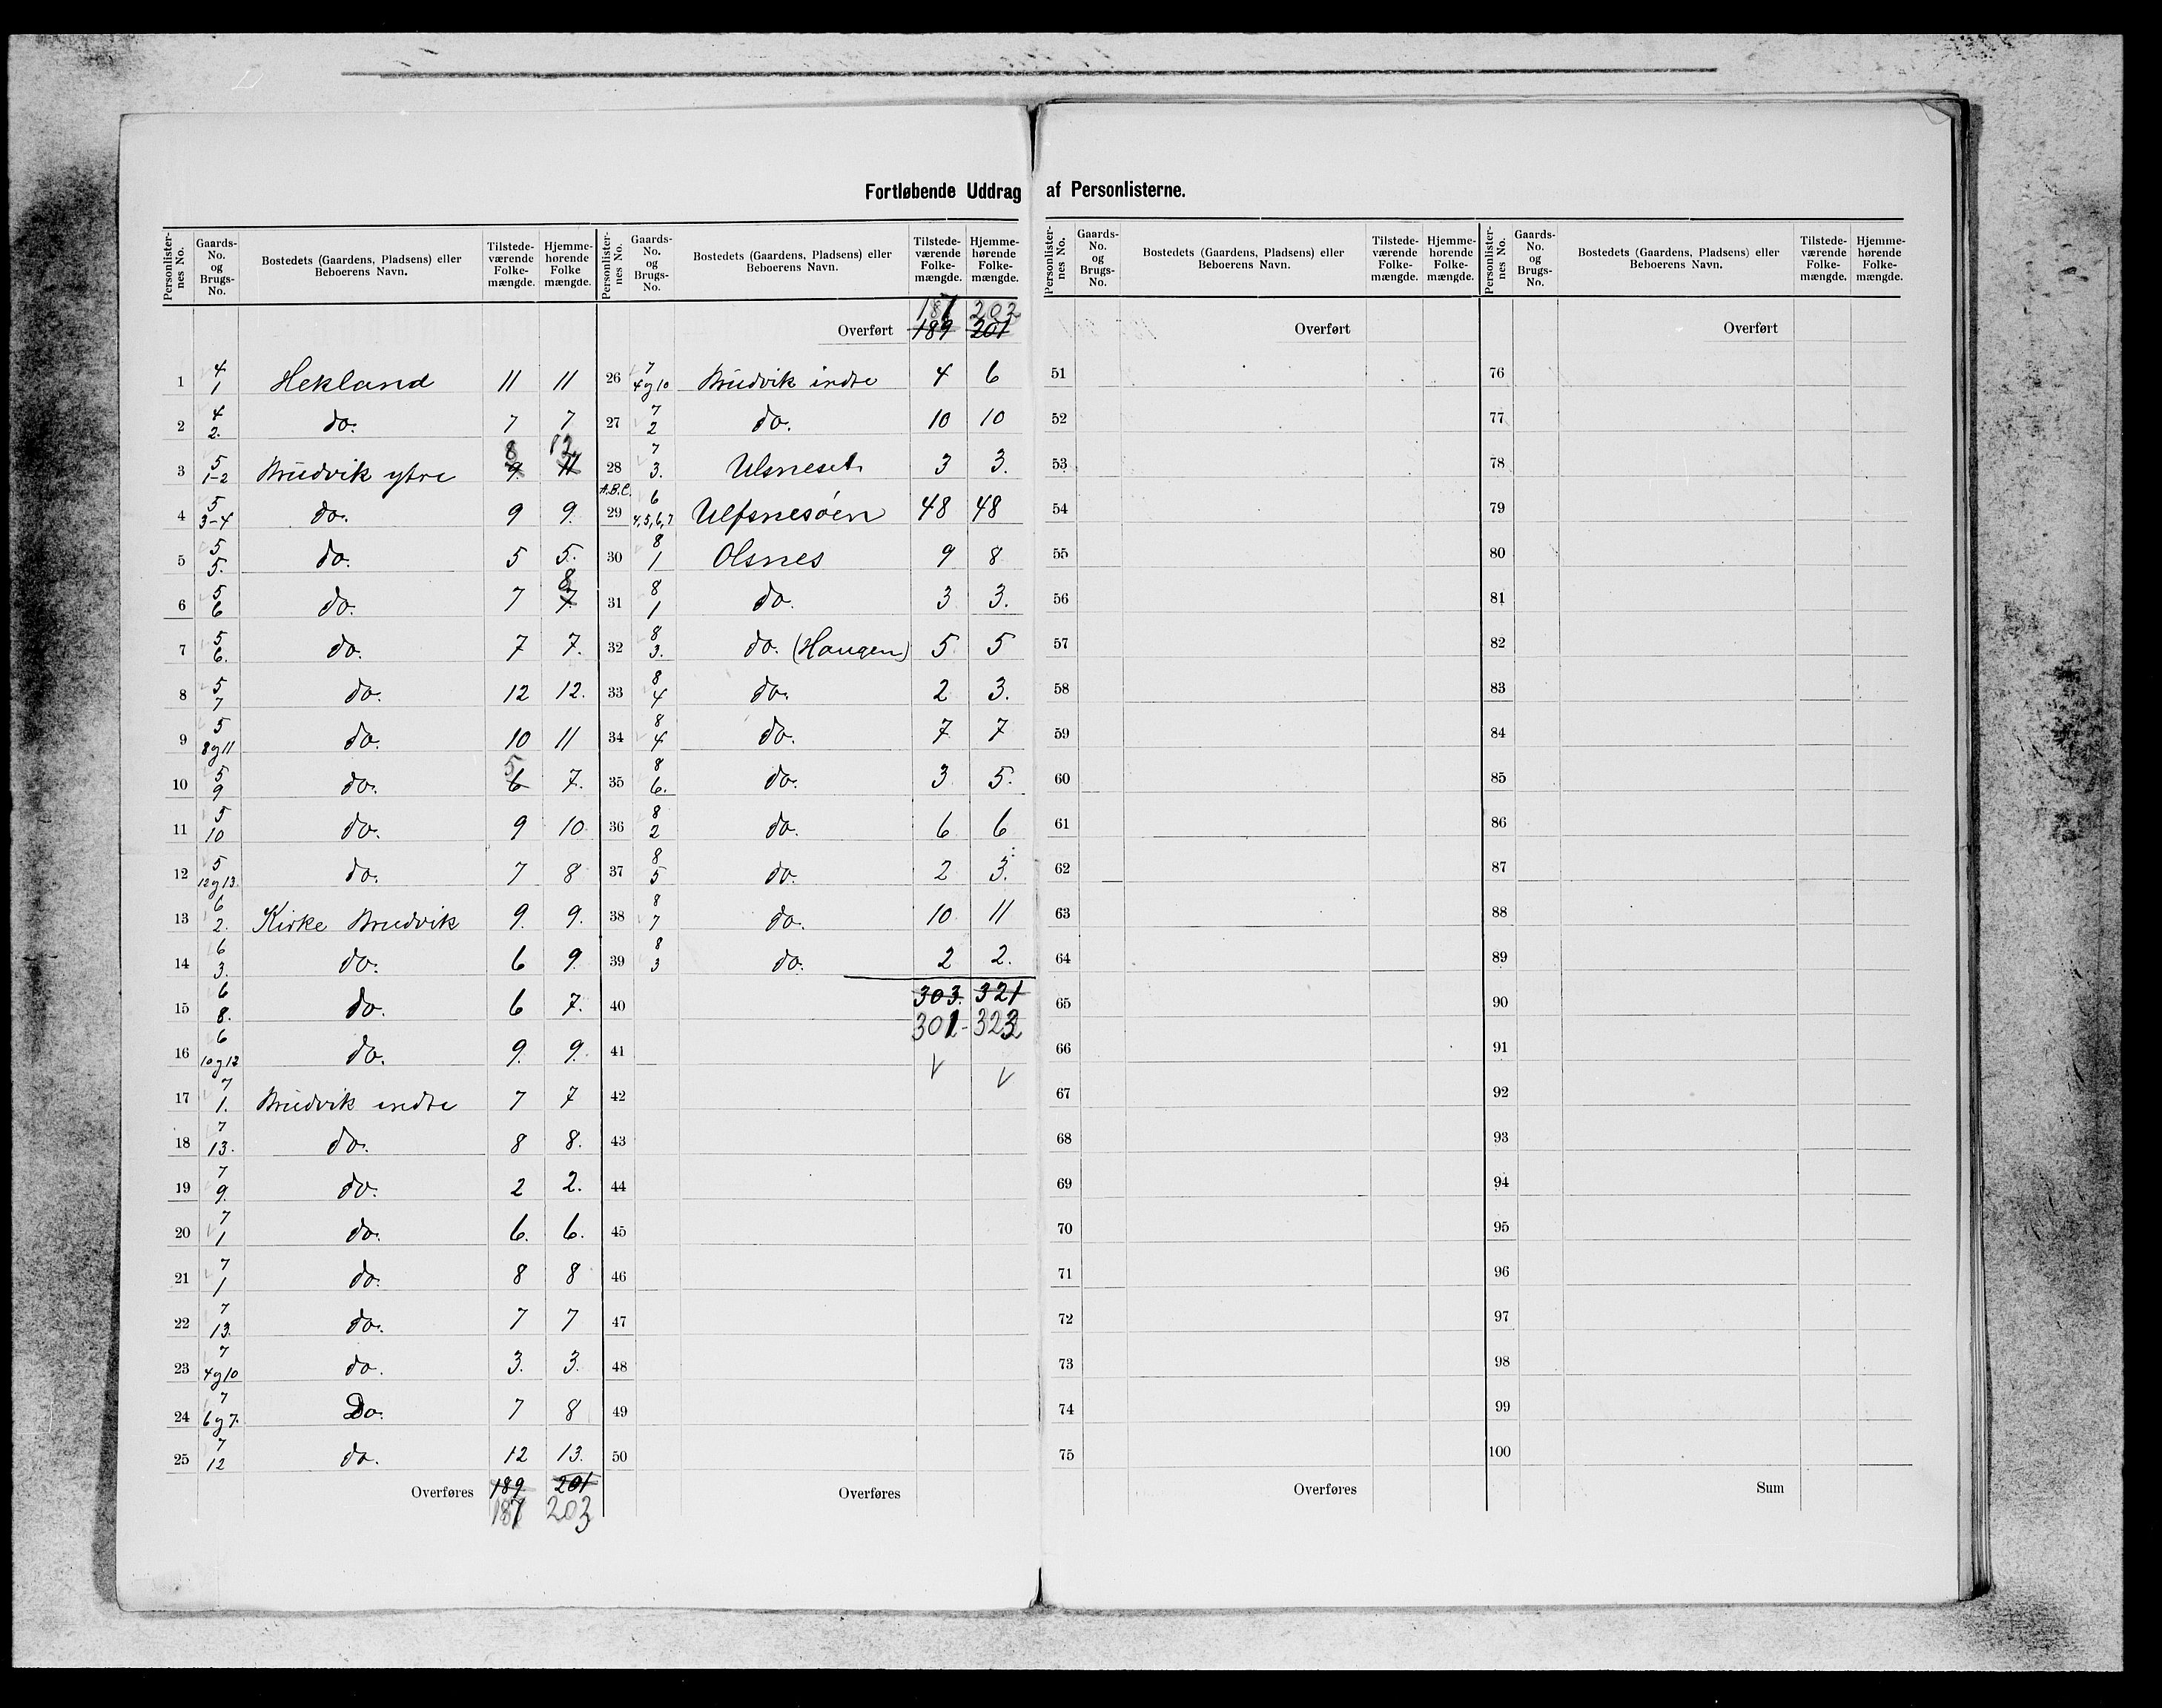 Fortløbende Uddrag af Personlisterne.
Personlister-nes No. Gaards-No. og Brugs-No. Bostedets (Gaardens, Pladsens) eller Beboerens Navn. Tilstede-værende Folke-mængde. Hjemme-hørende Folke mængde.
1 4 1 Hekland 11 11
2 4 2. do. 7 7
3 5 1-2 Bruvik ytre 9 8 11 12
4 5 3-4 do. 9 9.
5 5 5. do. 5 5.
6 5 6 do. 7 7. 8
7 5 6. do. 7 7.
8 5 7 do. 12 12.
9 5 8 og 11 do. 10 11
10 5 9 do. 6 5 7.
11 5 10 do. 9 10
12 5 12 og 13. do. 7 8
13 6 2. Kirke Bruvik 9. 9.
14 6 3. do. 6 9.
15 6 8. do. 6 7.
16 6 10 og 12 do. 9. 9.
17 7 1. Bruvik indre 7 7
18 7 13. do. 8 8.
19 7 9. do. 2 2.
20 7 1 do. 6. 6.
21 7 1 do. 8 8
22 7 13. do. 7 7
23 7 4 og 10 do. 3. 3.
24 7 6 og 7. Do. 7 8
25 7 12 do. 12 13.
Overføres 189 201
187 203
Personlister-nes No. Gaards-No. og Brugs-No. Bostedets (Gaardens, Pladsens) eller Beboerens Navn. Tilstede-værende Folke-mængde. Hjemme-hørende Folke-mængde.
187 203
Overført 189 201
26 7 4 og 10 Bruvik indre 4 6
27 7 2 do. 10 10
28 7 3. Ulsneset 3 3.
A.B.C.
29 6 4,5,6,7 Ulfsnesøen 48 48
30 8 1 Olsnes 9 8
31 8 1 do. 3 3.
32 8 3. do. (Haugen) 5 5
33 8 4 do. 2 3.
34 8 4 do. 7 7
35 8 6. do. 3 5.
36 8 2 do. 6 6
37 8 5 do. 2 3.
38 8 7 do. 10 11
39 8 3 do. 2 2.
40 303. 321
301- 323
41
42
43
44
45
46
47
48
49
50
Overføres
Personlister-nes No. Gaards-No. og Brugs-No. Bostedets (Gaardens, Pladsens) eller Beboerens Navn. Tilstede-værende Folke-mængde. Hjemme-hørende Folke-mængde.
Overført
51
52
53
54
55
56
57
58
59
60
61
62
63
64
65
66
67
68
69
70
71
72
73
74
75
Overføres
Personlister-nes No. Gaards-No. og Brugs-No. Bostedets (Gaardens, Pladsens) eller Beboerens Navn. Tilstede-værende Folke-mængde. Hjemme-hørende Folke-mængde.
Overført
76
77
78
79
80
81
82
83
84
85
86
87
88
89
90
91
92
93
94
95
96
97
98
99
100
Sum